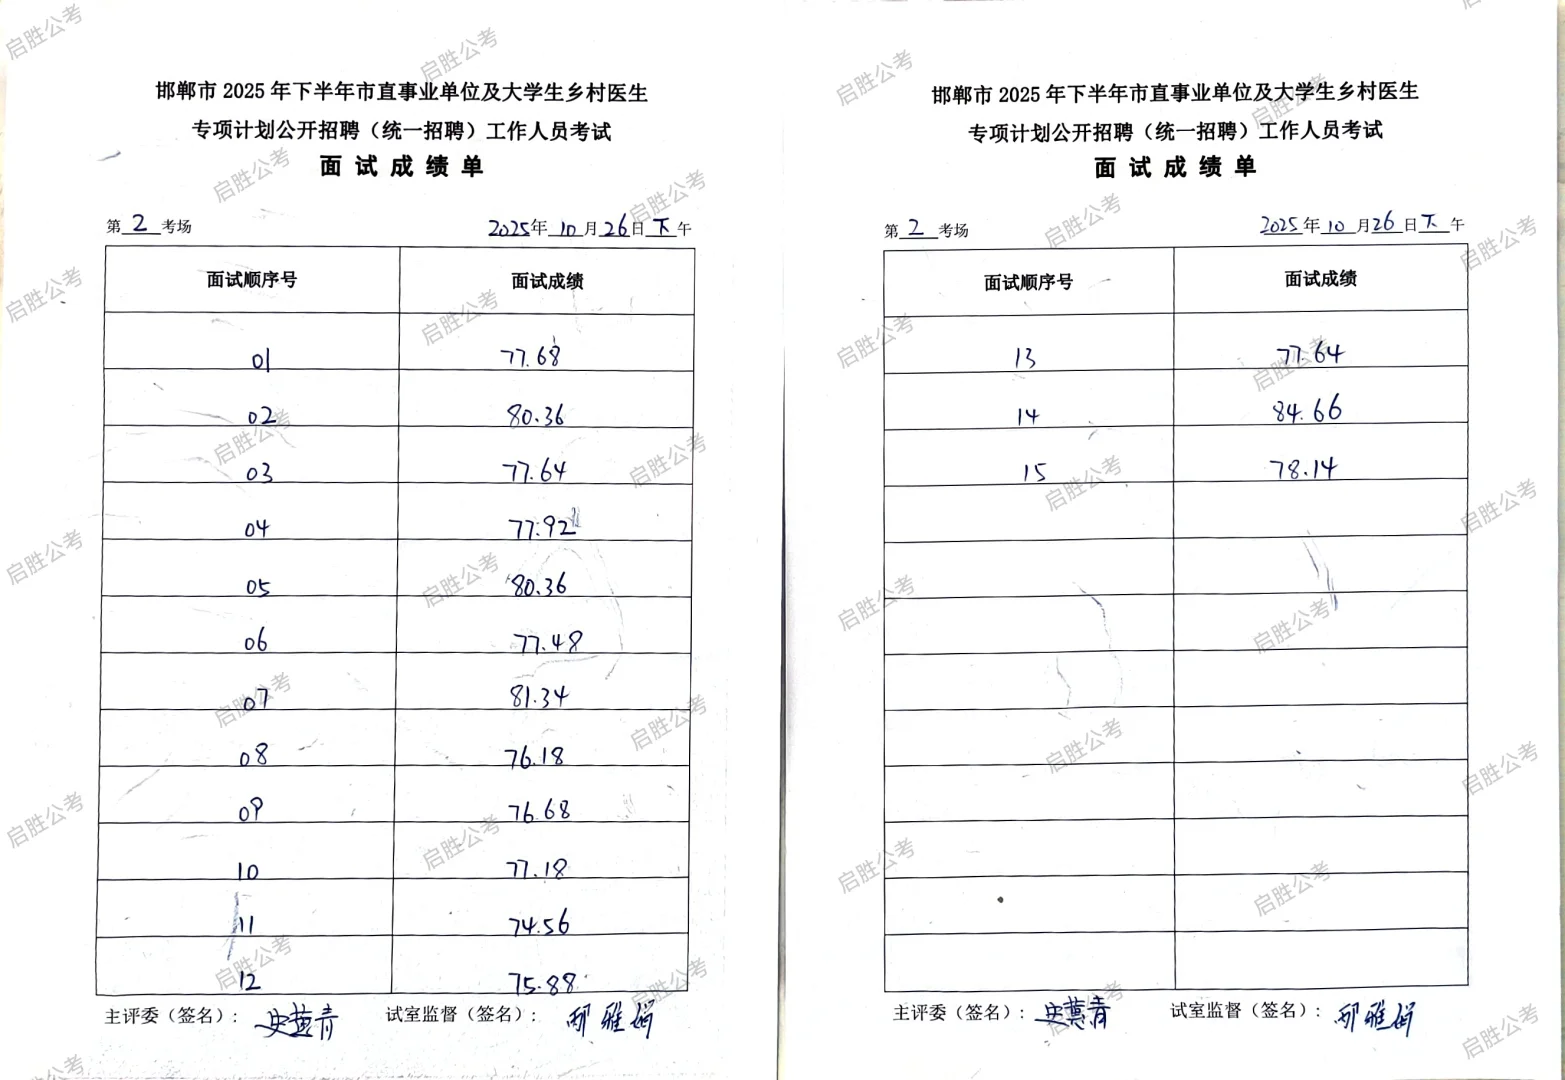 邯郸市 2025 年下半年市直事业单位及大学生乡村医生
专项计划公开招聘（统一招聘）工作人员考试
面试成绩单
第 2 考场 2025年 10 月 26 日 下 午
面试顺序号 面试成绩
01 77.68
02 80.36
03 77.64
04 77.92
05 80.36
06 77.48
07 81.34
08 76.18
09 76.68
10 77.18
11 74.56
12 75.88
主评委（签名）： 试室监督（签名）： 邢雅娟
邯郸市 2025 年下半年市直事业单位及大学生乡村医生
专项计划公开招聘（统一招聘）工作人员考试
面试成绩单
第 2 考场 2025 年 10 月 26 日 下 午
面试顺序号 面试成绩
13 77.64
14 84.66
15 78.14
主评委（签名）： 试室监督（签名）： 邢雅娟
启胜公考